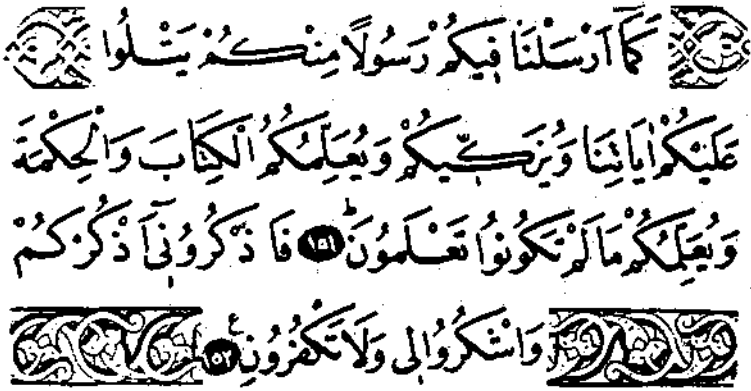 كَمَآ اَرْسَلْنَا فٖيكُمْ رَسُولًا مِنْكُمْ يَتْلُوا
عَلَيْكُمْ اٰيَاتِنَا وَيُزَكّٖيكُمْ وَيُعَلِّمُكُمُ الْكِتَابَ وَالْحِكْمَةَ
وَيُعَلِّمُكُمْ مَا لَمْ تَكُونُوا تَعْلَمُونَۜ ﴿١٥١﴾ فَاذْكُرُونٖٓي اَذْكُرْكُمْ
وَاشْكُرُوا لٖي وَلَا تَكْفُرُونِ ﴿١٥٢﴾